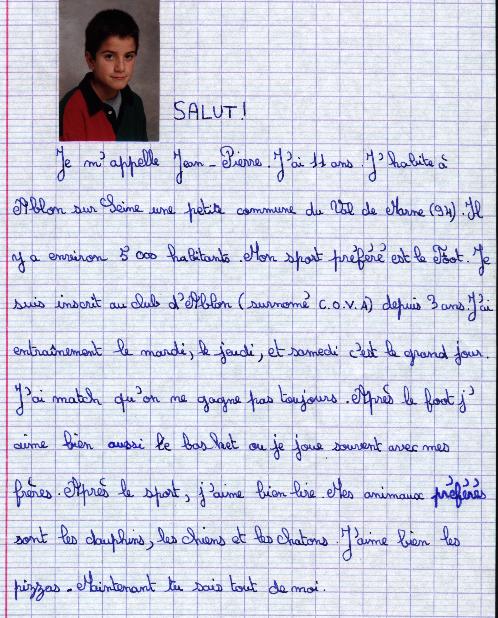 SALUT!
Je m'appelle Jean-Pierre. J'ai 11 ans. J'habite à
Ablon sur Seine une petite commune du Val de Marne (94). Il
y a environ 5 000 habitants. Mon sport préféré est le Foot. Je
suis inscrit au club d'Ablon (surnomé C.O.V.A) depuis 3 ans. J'ai
entraînement le mardi, le jeudi, et samedi c'est le grand jour.
J'ai match qu'on ne gagne pas toujours. Après le foot j'
aime bien aussi le basket ou je joue souvent avec mes
frères. Après le sport, j'aime bien lire. Mes animaux préférés
sont les dauphins, les chiens et les chatons. J'aime bien les
pizzas. Maintenant tu sais tout de moi.